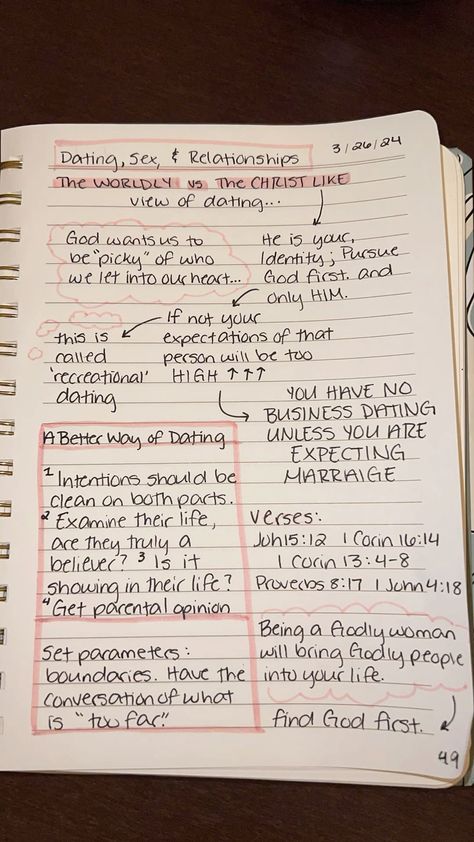 3/26/24
Dating, Sex, & Relationships
The WORLDLY vs The CHRIST LIKE
view of dating...
God wants us to
be "picky" of who
we let into our heart...
He is your
Identity; Pursue
God first, and
only HIM.
If not your
expectations of that
person will be too
HIGH ↑↑↑
this is
called
'recreational'
dating
YOU HAVE NO
BUSINESS DATING
UNLESS YOU ARE
EXPECTING
MARRAIGE
A Better Way of Dating
1 Intentions should be
clean on both parts.
2 Examine their life,
are they truly a
believer? 3 Is it
showing in their life?
4 Get parental opinion
Verses:
Joh 15:12 1 Corin 16:14
1 Corin 13:4-8
Proverbs 8:17 1 John 4:18
Set parameters:
boundaries. Have the
conversation of what
is "too far."
Being a Godly woman
will bring Godly people
into your life.
find God first.
49